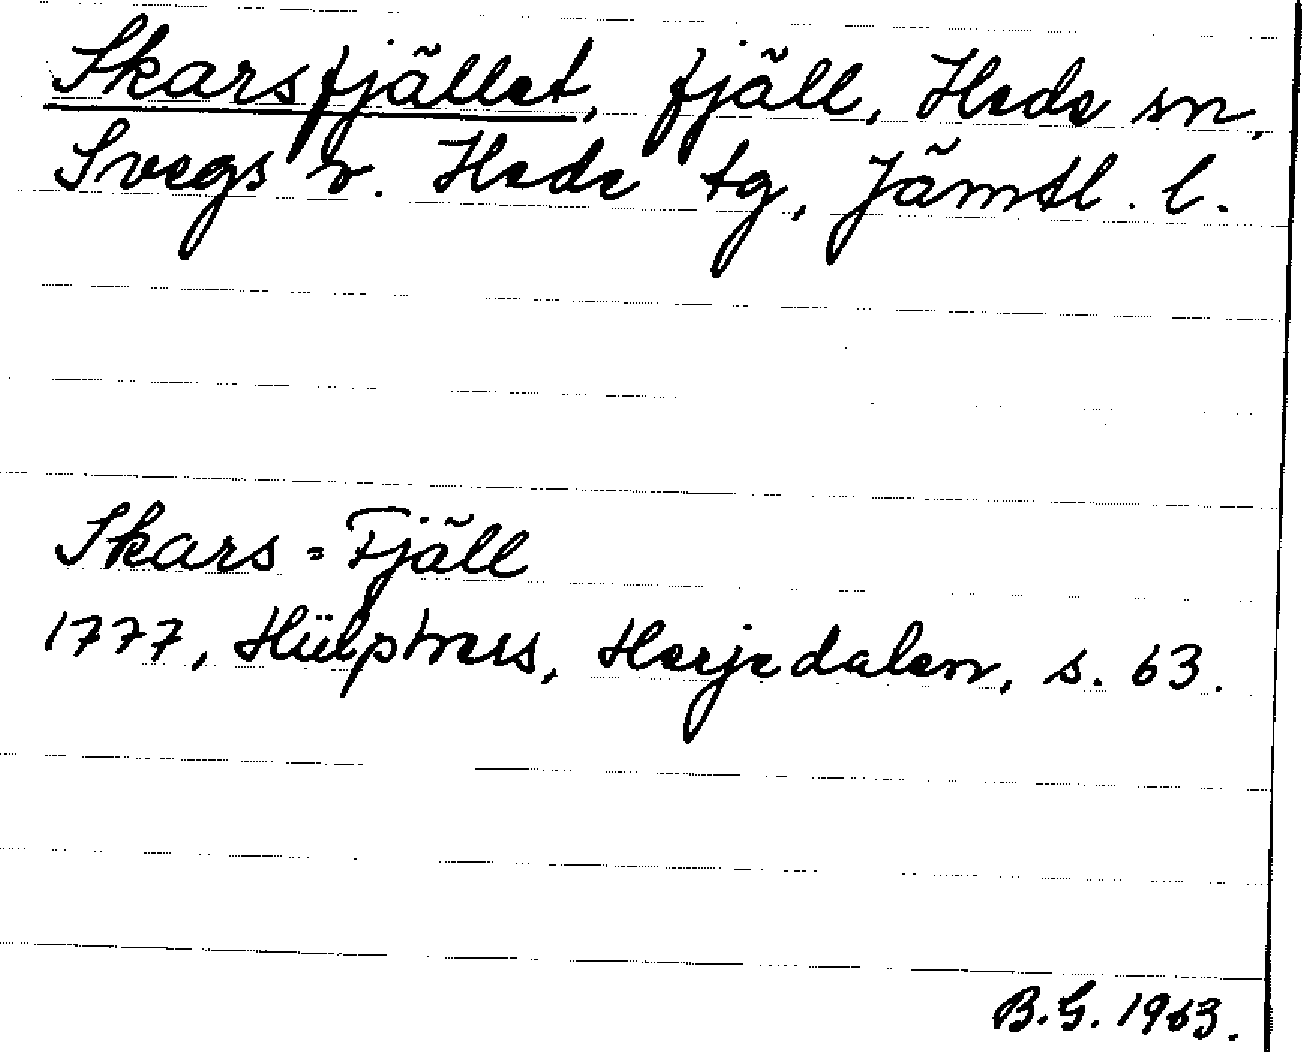 Skarsfjället, fjäll, Hede sn,
Svegs v. Hede tg, Jämtl. l.
Skars-Fjäll
1777, Hülphers, Herjedalen, s. 63.
B.G. 1963.